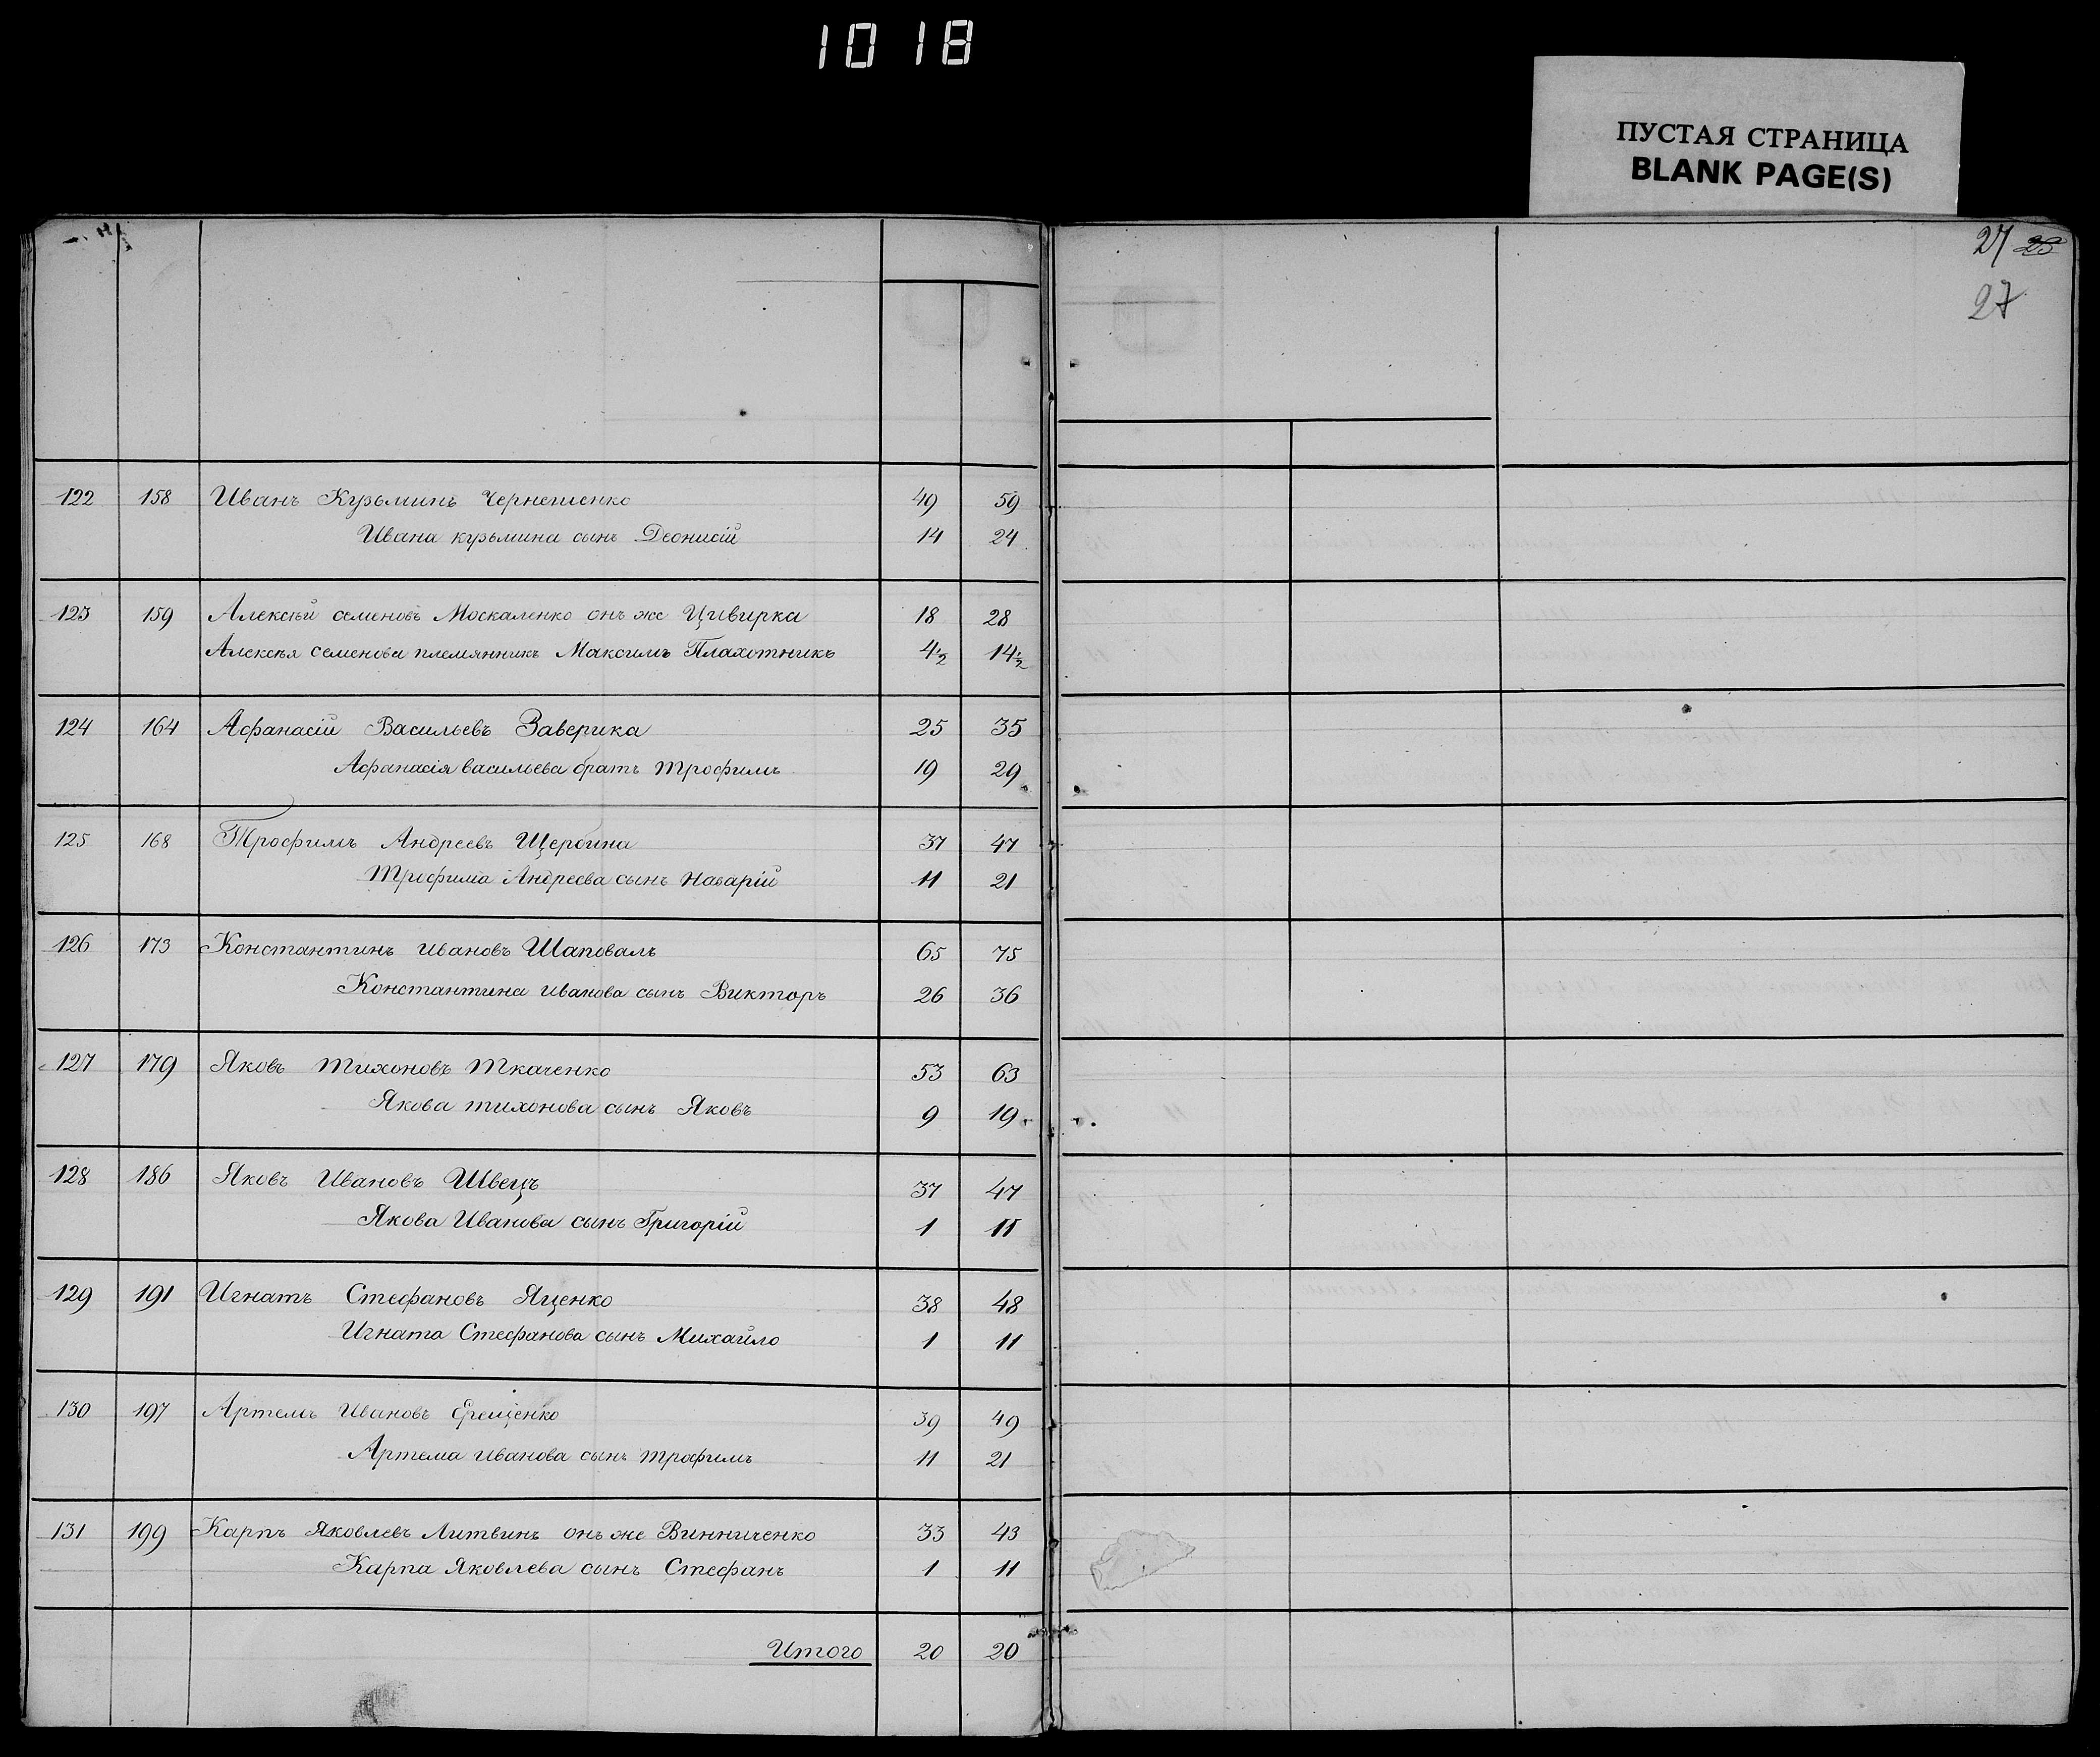 1018
ПУСТАЯ СТРАНИЦА
BLANK PAGE(S)
27 25
27
122 158 Иванъ Кузьминъ Чернешенко 49 59
Ивана кузьмина сынъ Деонисій 14 24
123 159 Алексѣй семеновъ Москаленко онъ же Цивирка 18 28
Алексѣя семенова племянникъ Максимъ Плахотникъ 4½ 14½
124 164 Афанасій Васильевъ Заверика 25 35
Афанасія васильева братъ трофимъ 19 29
125 168 Трофимъ Андреевъ Щербина 37 47
трофима Андреева сынъ Назарій 11 21
126 173 Константинъ ивановъ Шаповалъ 65 75
Константина иванова сынъ Викторъ 26 36
127 179 Яковъ тихоновъ ткаченко 53 63
Якова тихонова сынъ Яковъ 9 19
128 186 Яковъ Ивановъ Швецъ 37 47
Якова Иванова сынъ Григорій 1 11
129 191 Игнатъ Стефановъ Яценко 38 48
Игната Стефанова сынъ Михайло 1 11
130 197 Артемъ Ивановъ Ерещенко 39 49
Артема иванова сынъ трофимъ 11 21
131 199 Карпъ Яковлевъ Литвинъ онъ же Винниченко 33 43
Карпа Яковлева сынъ Стефанъ 1 11
Итого 20 20